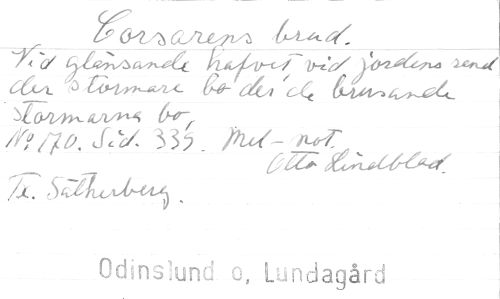 Corsarens brud.
Vid glänsande hafvet, vid jordens rand
der stormare bo der, de brusande
stormarna bo,
No. 170. Sid. 335. Mel-not.
Otto Lindblad.
Te. Sätherberg.
Odinslund o, Lundagård